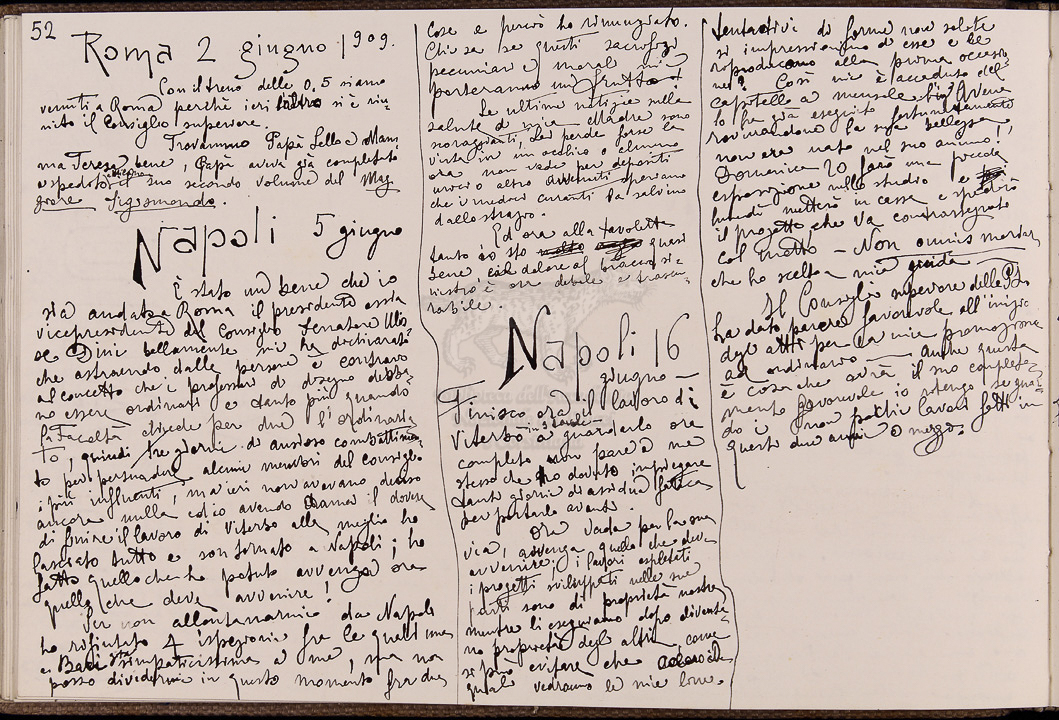 52
Roma 2 giugno 1909.
Con il treno delle 0,5 siamo
venuti a Roma perchè ieri l'altro si è riu-
nito il Consiglio superiore.
Trovammo Papà Lello e Mam-
ma Teresa bene, Papà aveva già completato
e spedito il suo secondo volume del Mag
giore Sigismondo.
Napoli 5 giugno
È stato un bene che io
sia andato a Roma il presidente ossia
vicepresidente del Consiglio Senatore Ulis-
se Dini bellamente mi ha dichiarato
che astraendo dalle persone è contrario
al concetto che i professori di disegno debba-
no essere ordinari e tanto più quando
la Facoltà chiede per due l'ordinaria-
to, quindi tre giorni di ansioso combattimen-
to per persuadere alcuni membri del consiglio
i più influenti, ma ieri non avevano deciso
ancora nulla ed io avendo il dovere
di finire il lavoro di Viterbo alla meglio ho
lasciato tutto e son tornato a Napoli; ho
fatto quello che ho potuto avvenga ora
quello che deve avvenire!
Per non allontanarmi da Napoli
ho rifiutato 4 ispezioni fra le quali una
a Bari simpaticissima a me, ma non
posso dividermi in questo momento fra due
cose e perciò ho rinunziato.
Chi sa se questi sacrifizi
pecuniari e morali mi
porteranno un frutto!
Le ultime notizie sulla
salute di mia Madre sono
scoraggianti, Lei perde forse la
vista in un occhio e almeno
ora non vada per depositi
urici o altro speriamo
che i medici curanti la salvino
dallo strazio.
Ed ora alla tavoletta
tanto io sto quasi
bene, il dolore al braccio si-
nistro è ora debole e trascu-
rabile.
Napoli 16
giugno —
Finisco ora il lavoro di
Viterbo a guardarlo ora
completo non pare a me
stesso che ho dovuto impiegare
tanti giorni di assidua fatica
per portarlo avanti.
Ora vada per la sua
via, avvenga quello che deve
avvenire; i lavori espletati
i progetti sviluppati nelle sue
parti sono di proprietà nostra
mentre li eseguiamo dopo diventa-
no proprietà degli altri, come
si può evitare che
quali vedranno le mie
tentativi di forme non solite
si impressionino di esse e le
riproducano alla prima occasio
ne?
Così mi è accaduto del
capitello a mensole,
lo ha già eseguito fortunatamente
rovinandone la sua bellezza
non era nato nel suo animo!!
Domenica 20 farò una piccola
esposizione nello studio e
lunedì metterò in cassa e spedirò
il progetto che va contrassegnato
col motto — Non omnis moriar
che ho scelto a mia guida —
Il Consiglio superiore della P.I.
ha dato parere favorevole all'inizio
degli atti per la mia promozione
ad ordinario — anche questa
è cosa che avrà il suo completa-
mento favorevole io ritengo, se guar-
do i non pochi lavori fatti in
questi due anni e mezzo.